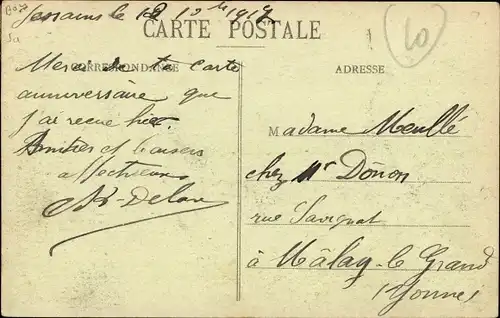 Jessains le 12 10bre 1917
CARTE POSTALE
CORRESPONDANCE
ADRESSE
Merci de ta carte
anniversaire que
j'ai reçue hier.
Amitiés et baisers
affectueux
Madame Meullé
chez Mr Donon
rue Savignat
à Mâlay-le Grand
(Yonne)
10